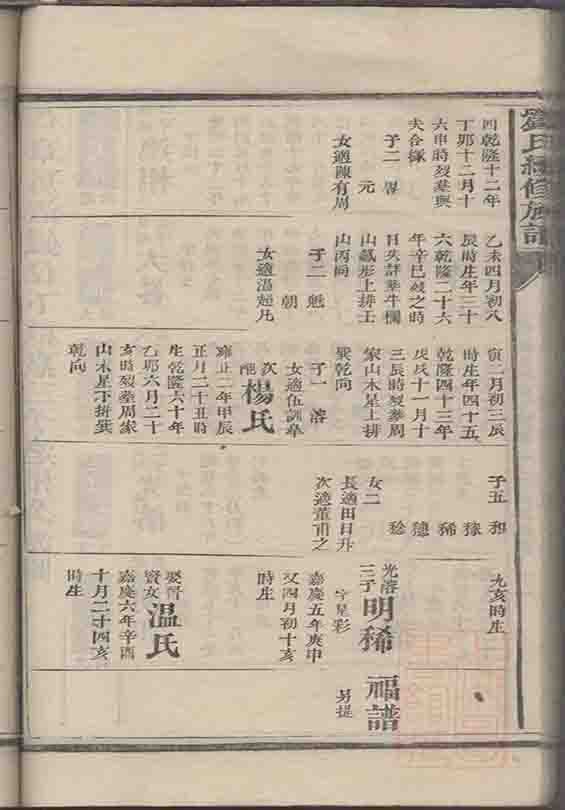 劉氏續修族譜
四乾隆十二年
丁卯十二月十
六申時歿葬與
夫合塚
子二 畧
元
女適陳有周
乙未四月初八
辰時生年三十
六乾隆二十六
年辛巳歿之時
日失詳葬牛欄
山蟻形上排壬
山丙向
子二 魁
朝
女適温超凡
寅二月初三辰
時生年四十五
乾隆四十三年
戊戌十一月十
三辰時歿葬周
家山木星上排
巽乾向
子一 溶
女適伍訓皋
次配 楊氏
雍正二年甲辰
正月二十丑時
生乾隆六十年
乙卯六月二十
亥時歿葬周家
山木星下排巽
乾向
子五 和
稼
稀
穗
稔
女二
長適田日升
次適董甫之
九亥時生
光溶三子 明稀
字星彩
嘉慶五年庚申
又四月初十亥
時生
娶曾
賢女 温氏
嘉慶六年辛酉
十月二十四亥
時生
福譜
另提